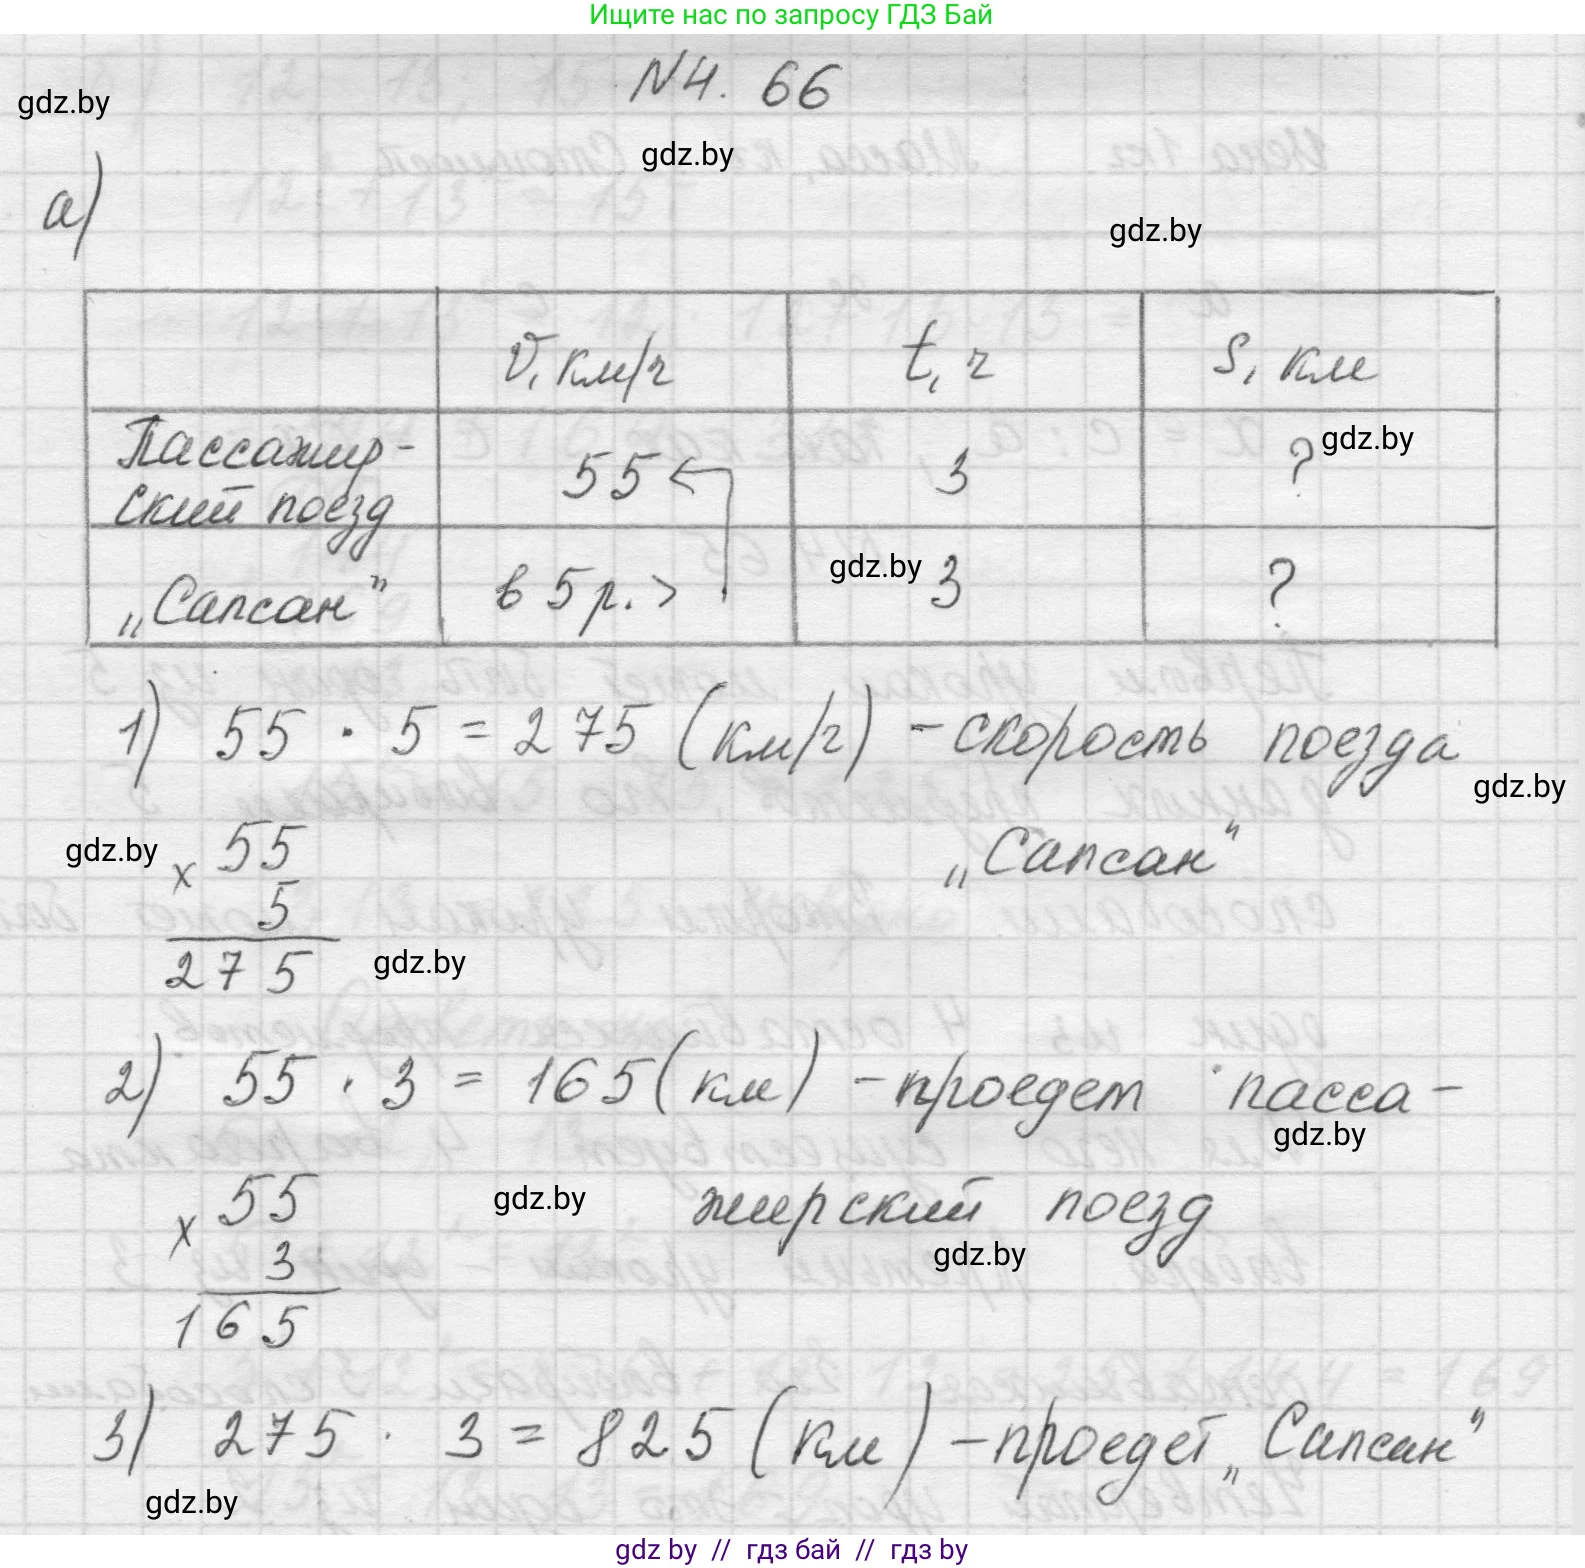 Ищите нас по запросу ГДЗ Бай
№4. 66
gdz.by
gdz.by
а)
gdz.by
V, км/ч t, ч S, км
Пассажир-
ский поезд 55 3 ? gdz.by
„Сапсан" в 5 р. > gdz.by 3 ?
1) 55 · 5 = 275 (км/ч) - скорость поезда
gdz.by
„Сапсан"
gdz.by × 55
5
275 gdz.by
2) 55 · 3 = 165 (км) - проедет пасса-
gdz.by
жирский поезд
× 55 gdz.by
gdz.by
3
165
3) 275 · 3 = 825 (км) - проедет „Сапсан"
gdz.by
gdz by // гдз бай // гдз by